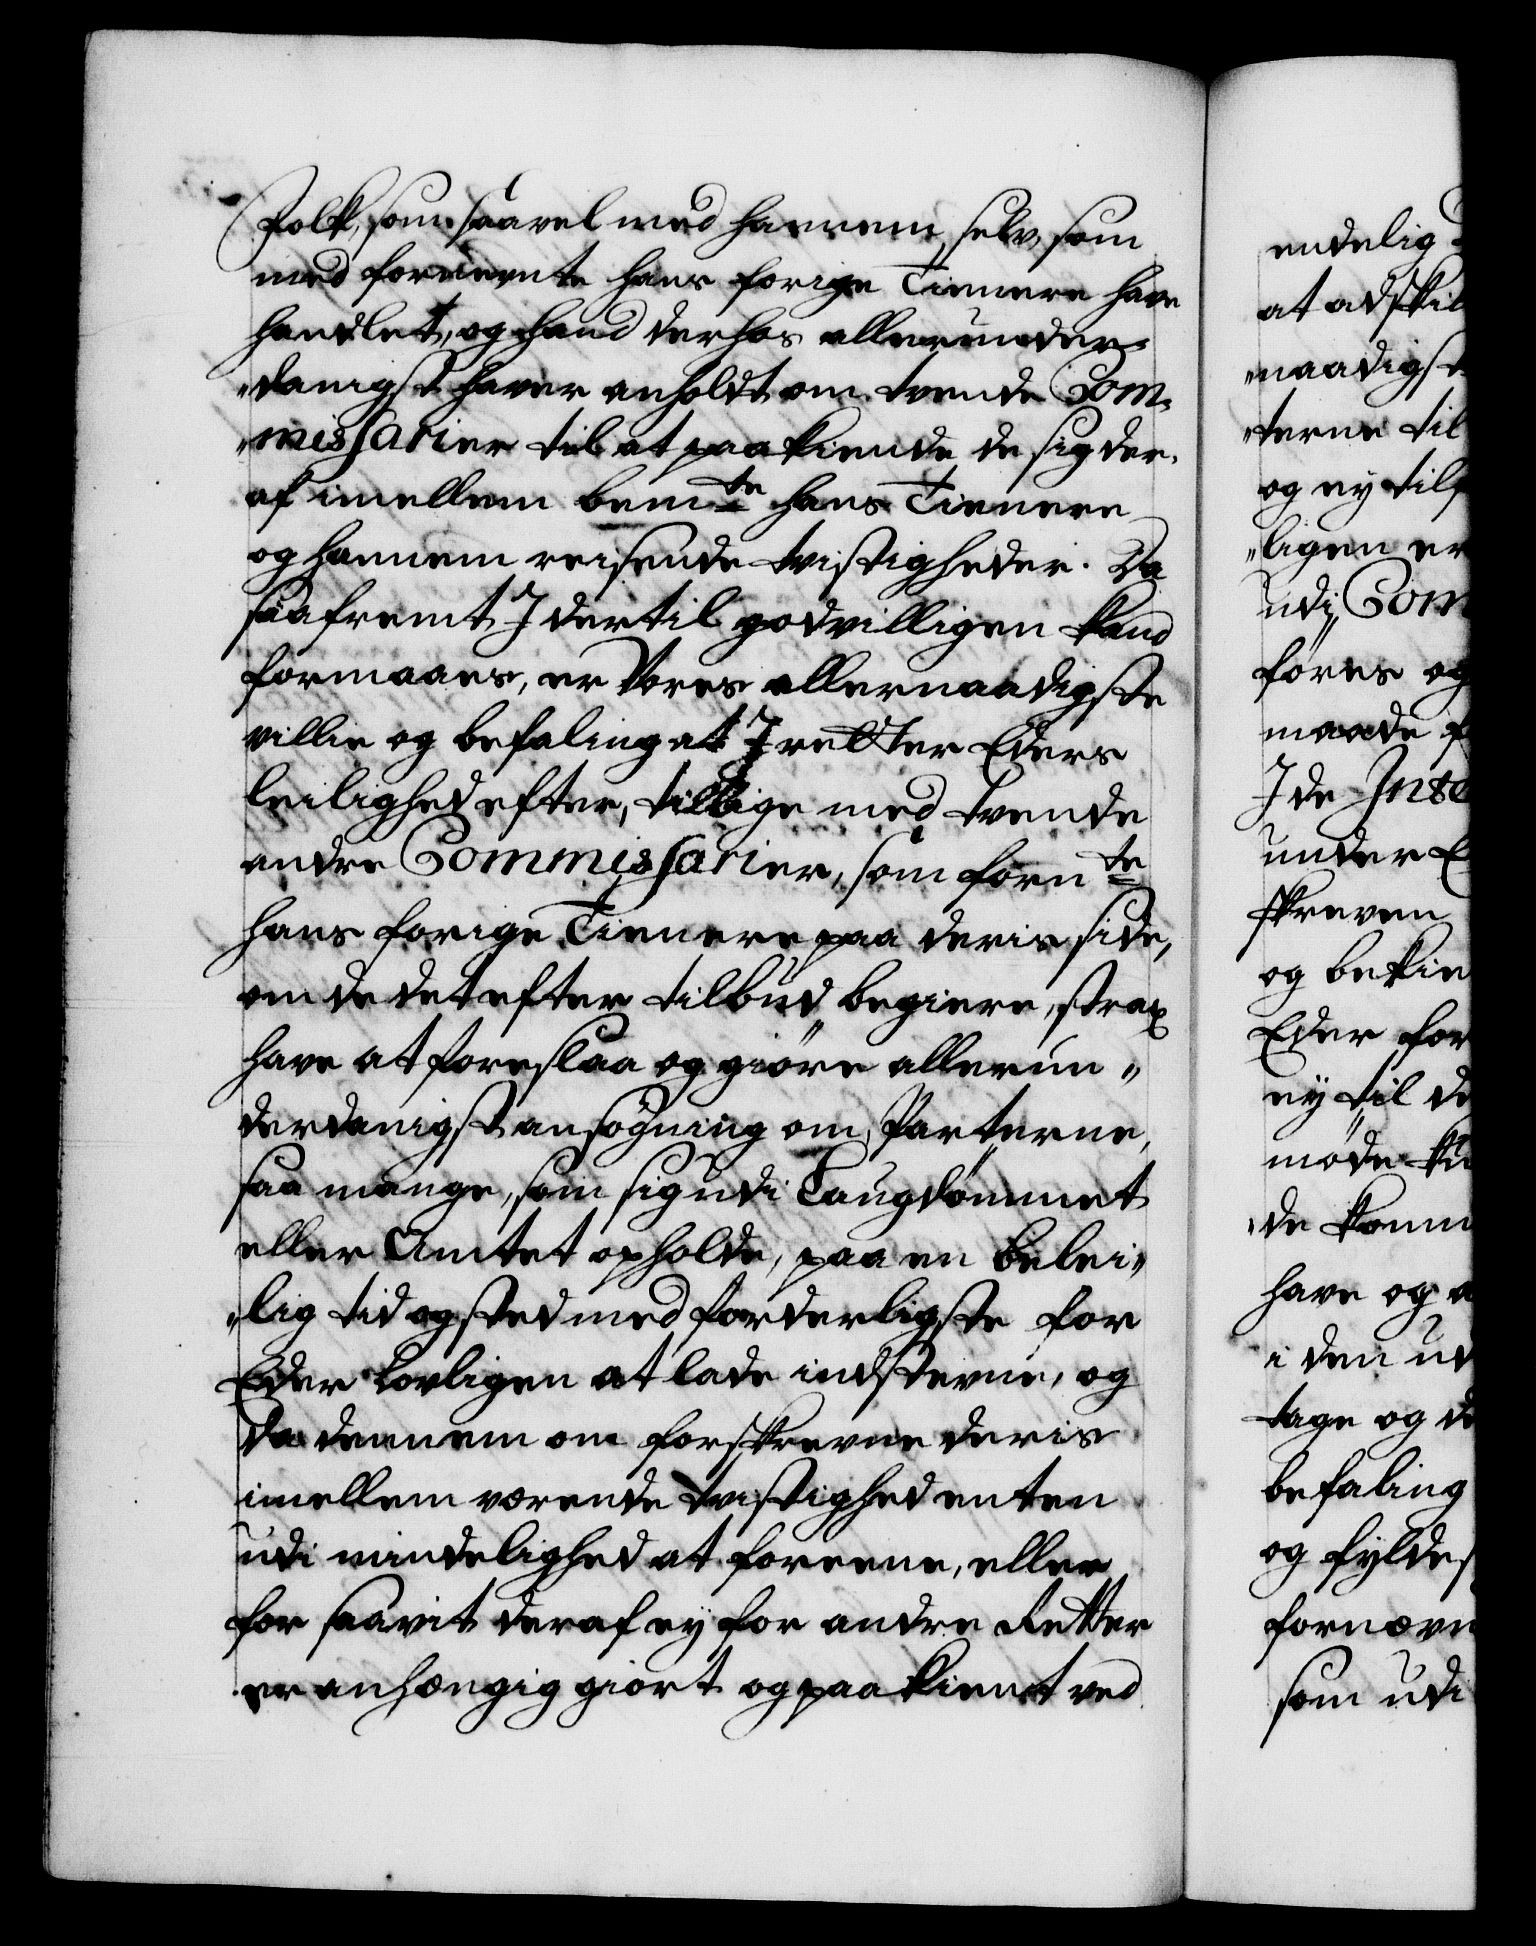 Folk, som saavel med hannem selv, som
med fornevnte hans forige Tiennere have
handlet, og hand derhos allerunder-
„danigst haver anholdt om tvende Com„
„missarier til at paakiende de sig der„
af imellem bem.te hans Tienere
og hannem reisende tvistigheder. Da
saafremt I dertil godvilligen kand
formaaes, er Vores allernaadigste
villie og befaling at I retter Eders
leilighed efter, tillige med tvende
andre Commissarier, som forn.te
hans forige Tiennere paa deris side,
om de det efter tilbud begiere, strax
have at foreslaa og giöre allerun„
derdanigst ansögning om, Parterne,
saa mange, som sig udi Laugdömmet
eller Amtet opholde, paa en belei„
„lig tid og sted med forderligste for
Eder lovligen at lade indstevne, og
da dennem om forskrevne deris
imellem værende tvistighed enten
udi mindelighed at foreene, eller
for saavit deraf ey for andre Retter
er anhængig giort og paakient ved

endelig
at adskil
„naadigst
„terne til
og ey til
„ligen er
udi Com
föres og
maade
I de
under E
skreven
og bekie
Eder for
ey til de
möde
de komm
have og
i den ud
tage og de
befaling
og fyldes
fornævn
som udi